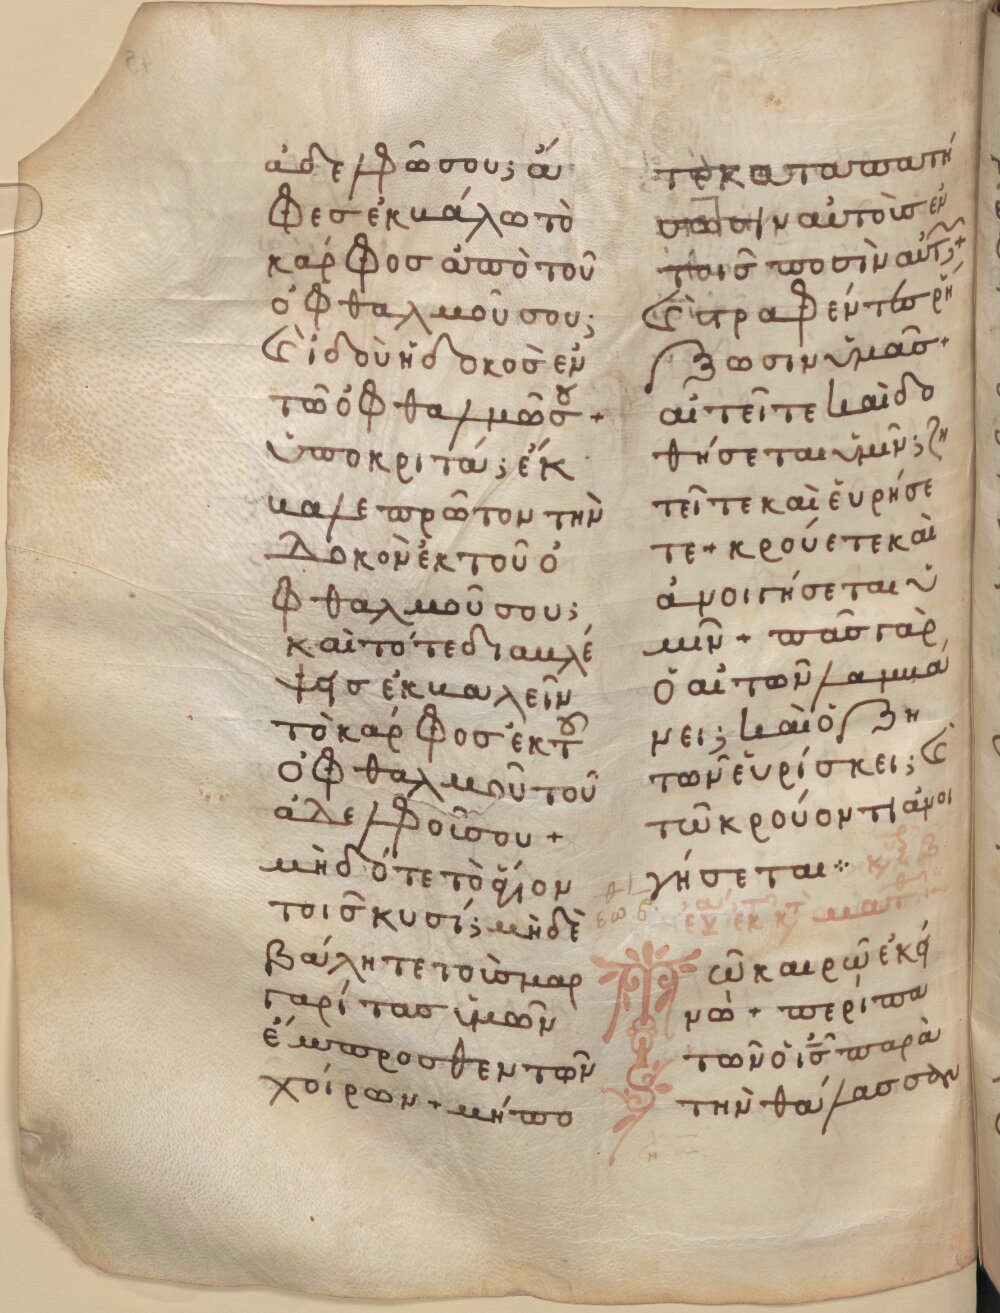 ἀδελφῶ σου; ἄ
φες ἐκβάλω τὸ
κάρφος ἀπὸ τοῦ
ὀφθαλμοῦ σου;
καὶ ἰδοὺ ἡ δοκὸς ἐν
τῶ ὀφθαλμῶ σου +
ὑποκριτά; ἔκ
βαλε πρῶτον τὴν
δοκὸν ἐκ τοῦ ὀ
φθαλμοῦ σου;
καὶ τότε διαβλέ
ψεις ἐκβαλεῖν
τὸ κάρφος ἐκ τοῦ
ὀφθαλμοῦ τοῦ
ἀδελφοῦ σου +
μὴ δότε τὸ ἅγιον
τοῖς κυσί; μὴδὲ
βάλητε τοὺς μαρ
γαρίτας ὑμῶν
ἔμπροσθεν τῶν
χοίρων + μήπο
τε καταπατή
σωσιν αὐτοὺς ἐν
τοῖς ποσὶν αὐτῶν +
καὶ στραφέντες ῥή
ξωσιν ὑμᾶς +
αἰτεῖτε καὶ δο
θήσεται ὑμῖν; ζη
τεῖτε καὶ εὑρήσε
τε + κρούετε καὶ
ἀνοιγήσεται ὑ
μῖν + πᾶς γὰρ
ὁ αἰτῶν λαμβά
νει; καὶ ὁ ζη
τῶν εὑρίσκει; καὶ
τῶ κρούοντι ἀνοι
γήσεται ⁘
ἐκ τοῦ κατὰ ματθ
Τῶ καιρῶ ἐκεί
νω + περιπα
τῶν ὁ ις παρὰ
τὴν θάλασσαν